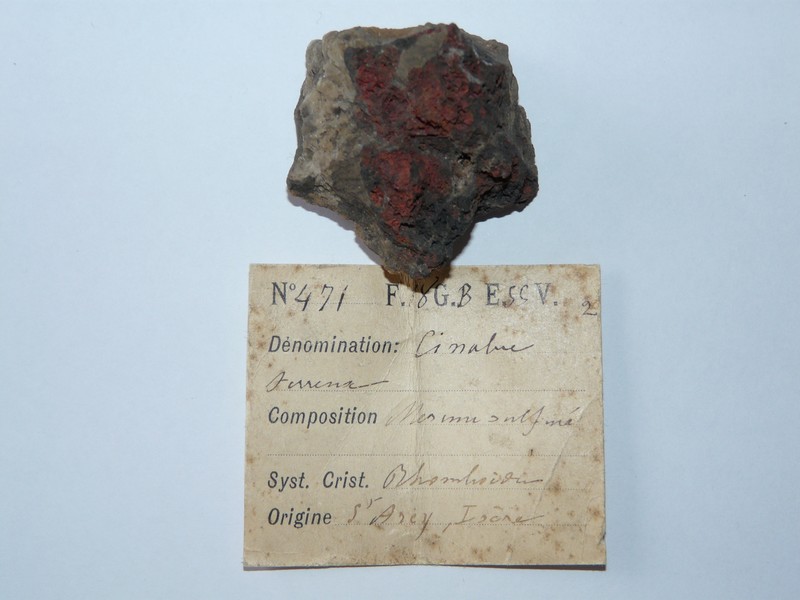 No 471 F. 8 G. B E. 59 V. 2
Dénomination: Cinabre
terreux
Composition Mercure sulfuré
Syst. Crist. Rhomboédr
Origine St Arey, Isère